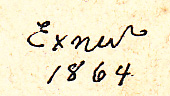 Exner
1864